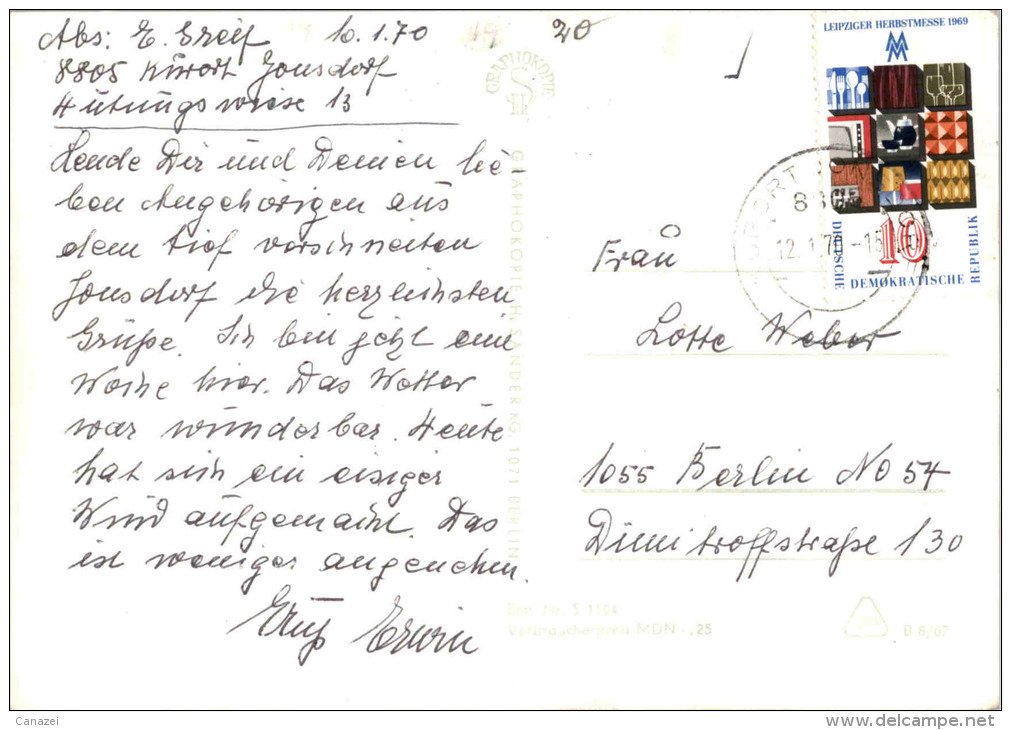 Abs: E. Greif 10.1.70
8805 Kurort Jonsdorf
Hütungswiese 13
Sende Dir und Deinen lie
ben Angehörigen aus
dem tief verschneiten
Jonsdorf die herzlichsten
Grüße. Ich bin jetzt eine
Woche hier. Das Wetter
war wunderbar. Heute
hat sich ein eisiger
Wind aufgemacht. Das
ist weniger angenehm.
Erwin
19
20
GRAPHOKOPIE
GRAPHOKOPIE H. SANDER KG, 1071 BERLIN
Best. Nr. S 1104
Verbraucherpreis MDN -,25
B 6/67
LEIPZIGER HERBSTMESSE 1969
MM
10
DEUTSCHE
DEMOKRATISCHE
REPUBLIK
12.1.70-15
Frau
Lotte Weber
1055 Berlin NO 54
Dimitroffstraße 130
Canazei
www.delcampe.net